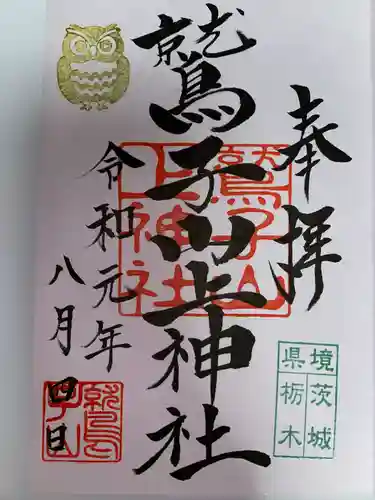 奉拝
鷲子山上神社
令和元年
八月四日
鷲子山
上神社
境茨城
県栃木